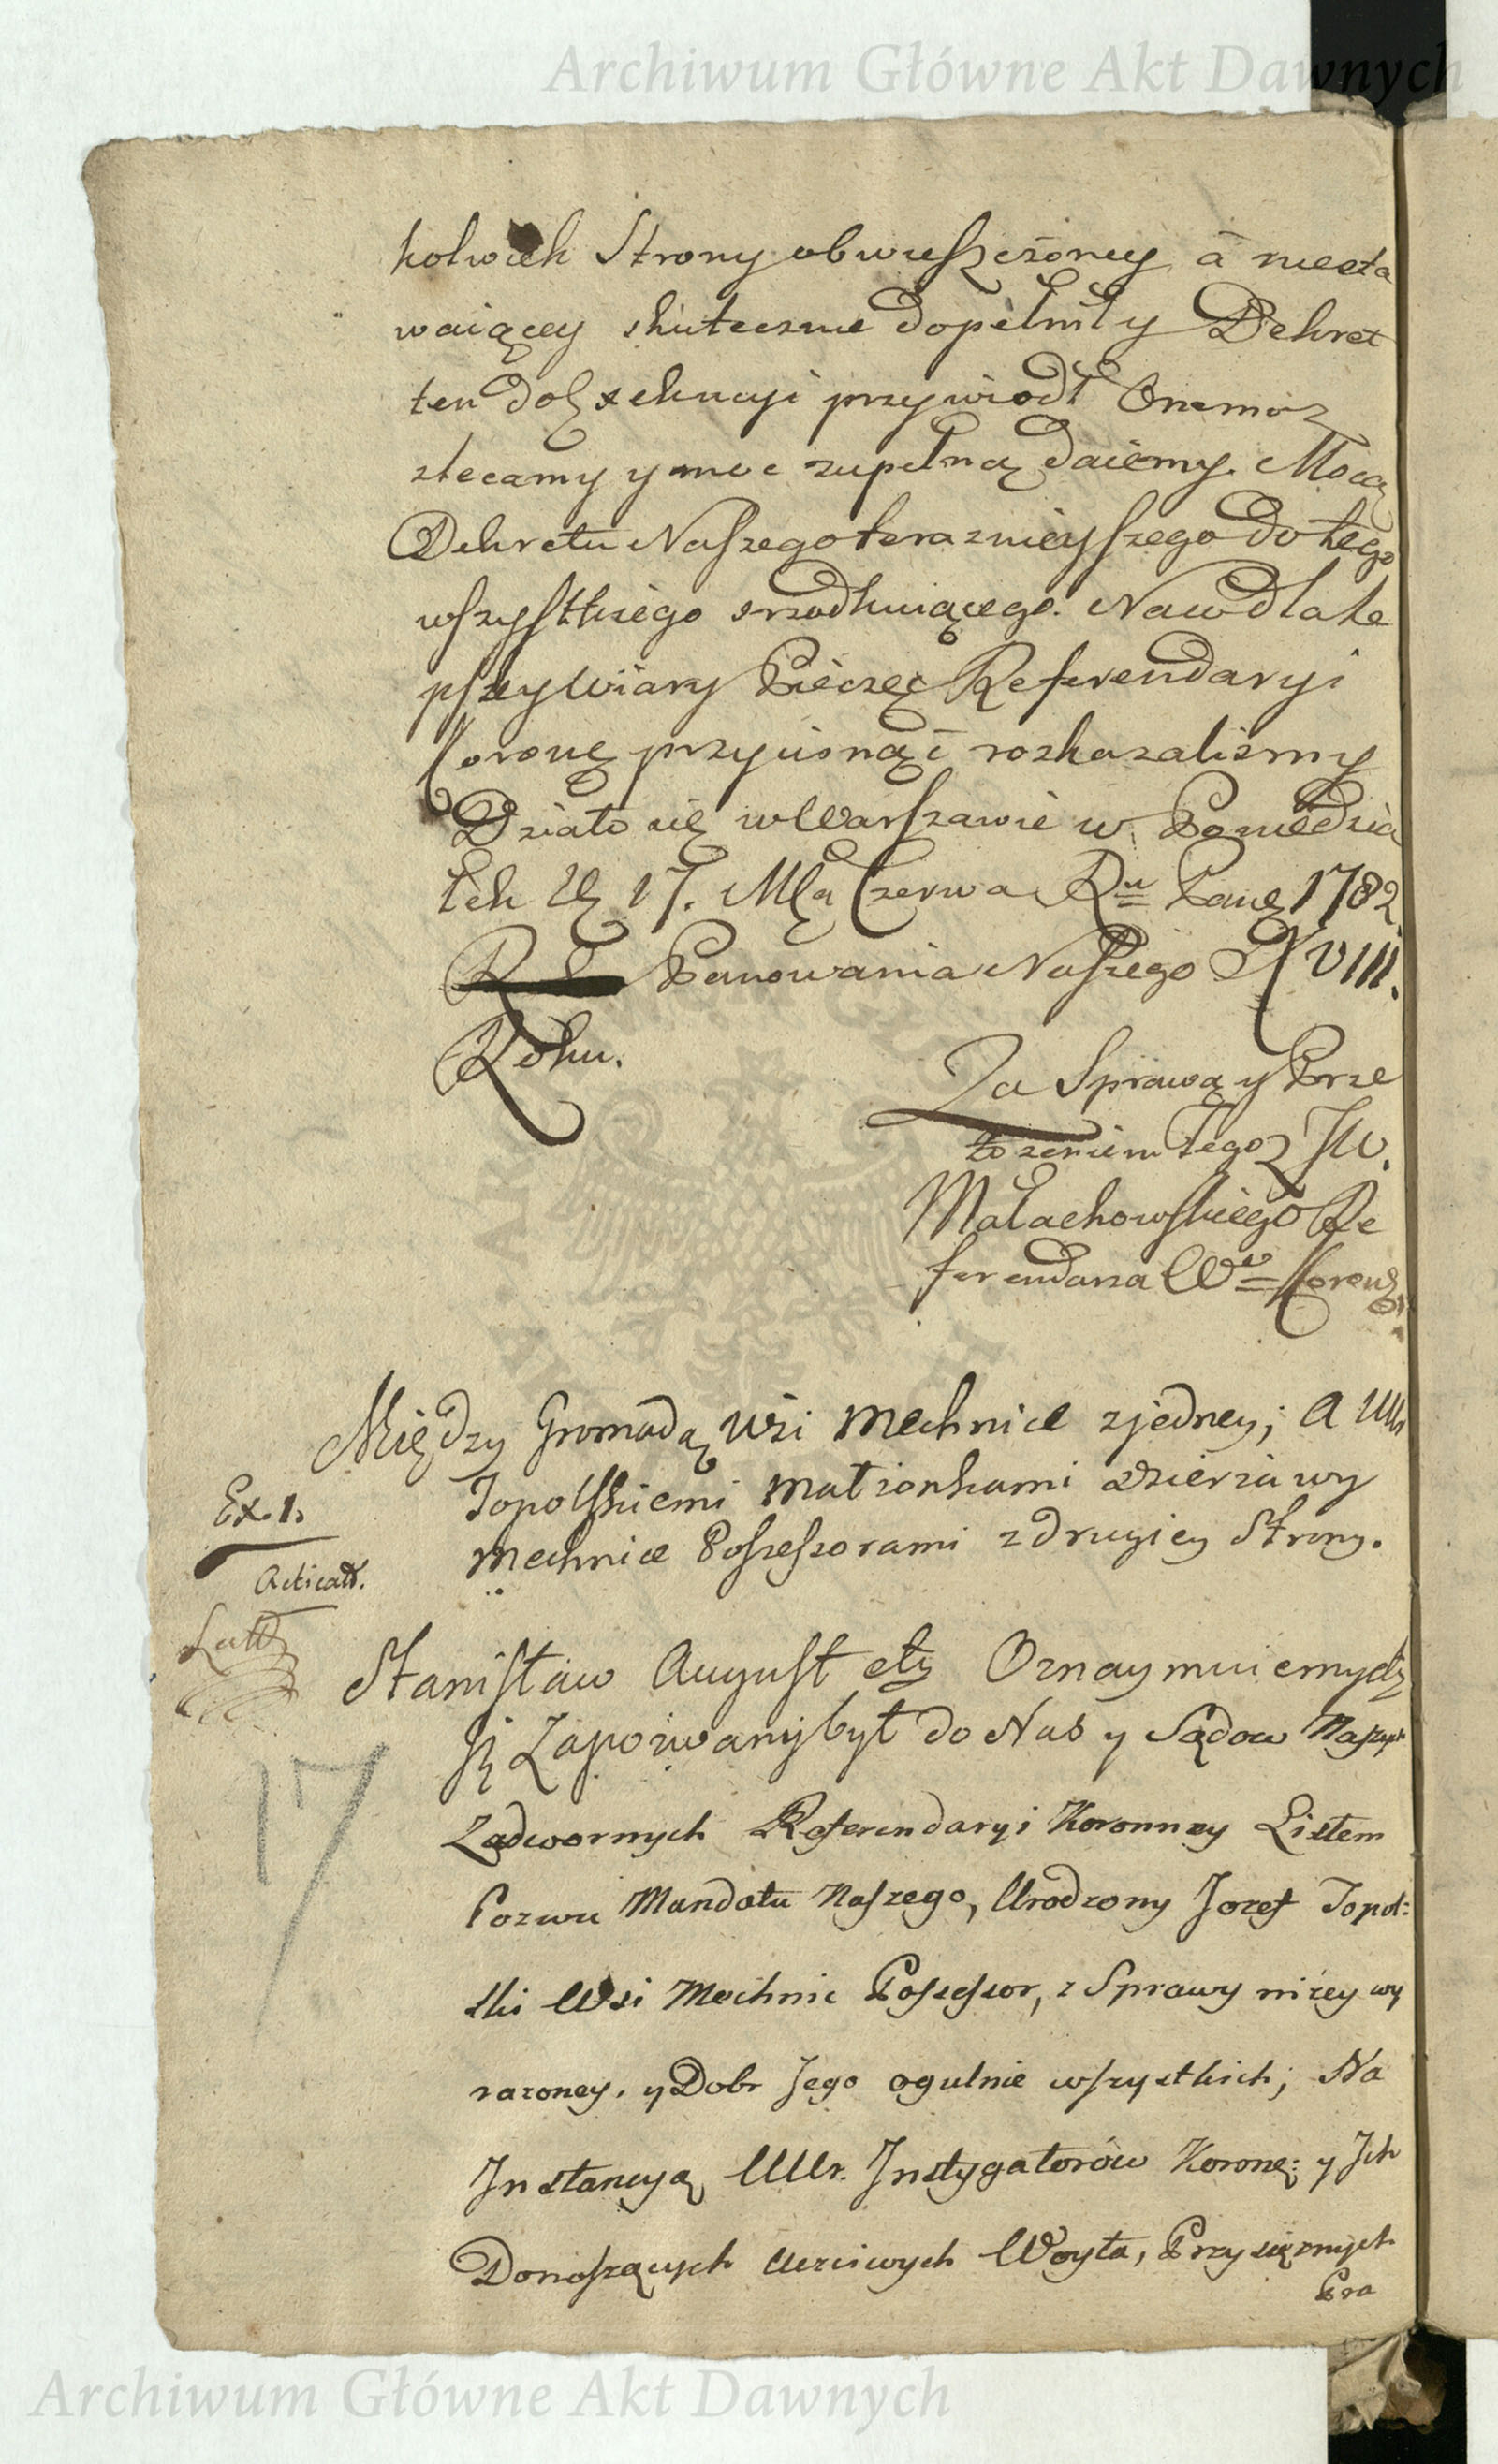 Archiwum Główne Akt Dawnych
kolwiek Strony obwieszczoney a niesta
waiącey skutecznie dopełnił y Dekret
ten do Exekucyi przywiodł Onemuz
zlecamy y moc zupełną daiemy. Mocą
Dekretu Naszego teraznieyszego do tego
wszystkiego srzodkuiącego. Na w dlake
pszey Wiary Pieczęć Referendaryi
Koronę przycisnąć rozkazalismy
Działo się w Warszawie w Poniedzia
łek D. 17. Mca Czerwca Ru Panę 1782
Panowania Naszego XVIII.
Roku.
Za Sprawą y Prze
łozeniem Tegoz JW.
Małachowskiego Re
ferendarza Wo Koronę.
Między Gromadą Wsi Mechnice zjedney; A UUr
Topolskiemi Małzonkami dzierzawy
Mechnice Poszeszorami z drugiey Strony.
Ex. 1.
Acticatt.
Stanisław August etz Oznaymuiemy etz
Jż Zapozwany był do Nas y Sądow Naszych
Zadwornych Referendaryi Koronney Listem
Pozwu Mandatu Naszego, Urodzony Jozef Topol:
ski Wsi Mechnic Poszeszor, z Sprawy nizey wy
razoney. y Dobr Jego ogulnie wszystkich; Na
Jnstancyą UUr. Jnstygatorów Koronę: y Jch
Donoszących Uczciwych Woyta, Przysięznych
Pra
17
Archiwum Główne Akt Dawnych